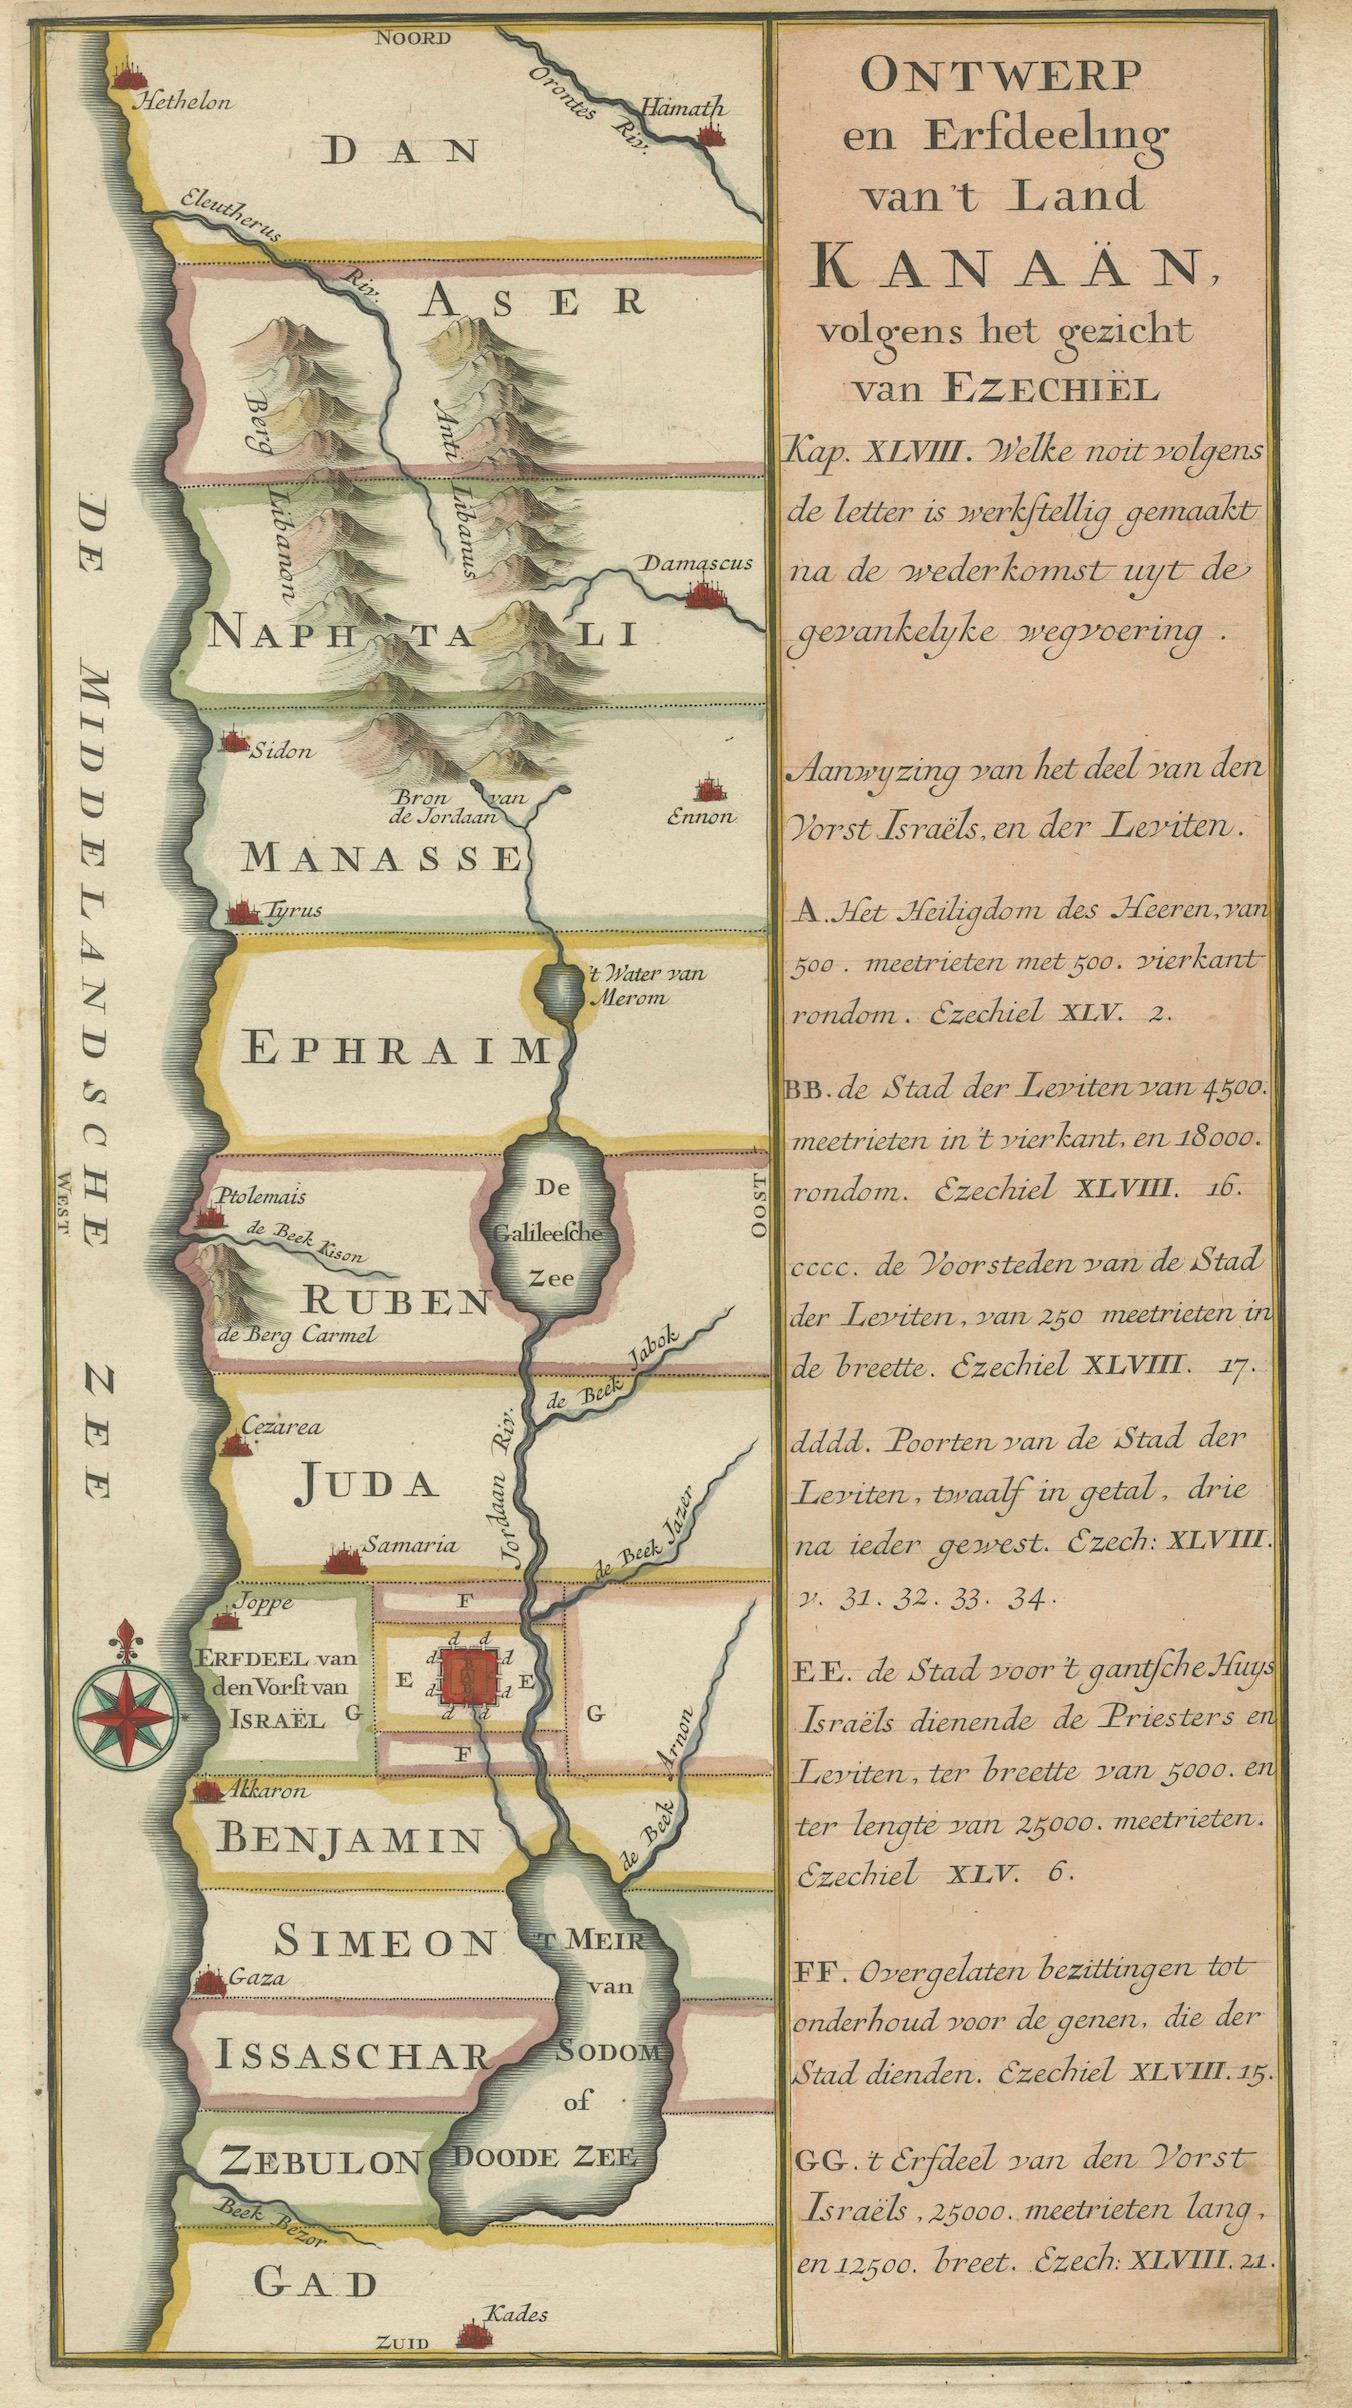 NOORD
Hethelon
Orontes Riv.
Hamath
DAN
Eleutherus Riv.
ASER
Berg Libanon
Anti Libanus
Damascus
NAPHTALI
Sidon
Bron van
de Jordaan
Ennon
MANASSE
Tyrus
't Water van
Merom
EPHRAIM
DE MIDDELANDSCHE ZEE
WEST
OOST
Ptolemais
de Beek Kison
De
Galileesche
Zee
RUBEN
de Berg Carmel
de Beek Jabok
Cezarea
Jordaan Riv.
JUDA
de Beek Jazer
Samaria
Joppe
F
d d
ERFDEEL van
den Vorst van
ISRAËL G
E d d E
d d
A
G
d d
F
de Beek Arnon
Akkaron
BENJAMIN
SIMEON
'T MEIR
van
SODOM
of
DOODE ZEE
Gaza
ISSASCHAR
ZEBULON
Beek Bezor
GAD
Kades
ZUID
ONTWERP
en Erfdeeling
van't Land
KANAÄN,
volgens het gezicht
van EZECHIËL
Kap. XLVIII. Welke noit volgens
de letter is werkstellig gemaakt
na de wederkomst uyt de
gevankelyke wegvoering.
Aanwyzing van het deel van den
Vorst Israëls, en der Leviten.
A. Het Heiligdom des Heeren, van
500. meetrieten met 500. vierkant
rondom. Ezechiel XLV. 2.
BB. de Stad der Leviten van 4500.
meetrieten in 't vierkant, en 18000.
rondom. Ezechiel XLVIII. 16.
cccc. de Voorsteden van de Stad
der Leviten, van 250 meetrieten in
de breette. Ezechiel XLVIII. 17.
dddd. Poorten van de Stad der
Leviten, twaalf in getal, drie
na ieder gewest. Ezech: XLVIII.
v. 31. 32. 33. 34.
EE. de Stad voor 't gantsche Huys
Israëls dienende de Priesters en
Leviten, ter breette van 5000. en
ter lengte van 25000. meetrieten.
Ezechiel XLV. 6.
FF. Overgelaten bezittingen tot
onderhoud voor de genen, die der
Stad dienden. Ezechiel XLVIII. 15.
GG. 't Erfdeel van den Vorst
Israëls, 25000. meetrieten lang,
en 12500. breet. Ezech: XLVIII. 21.